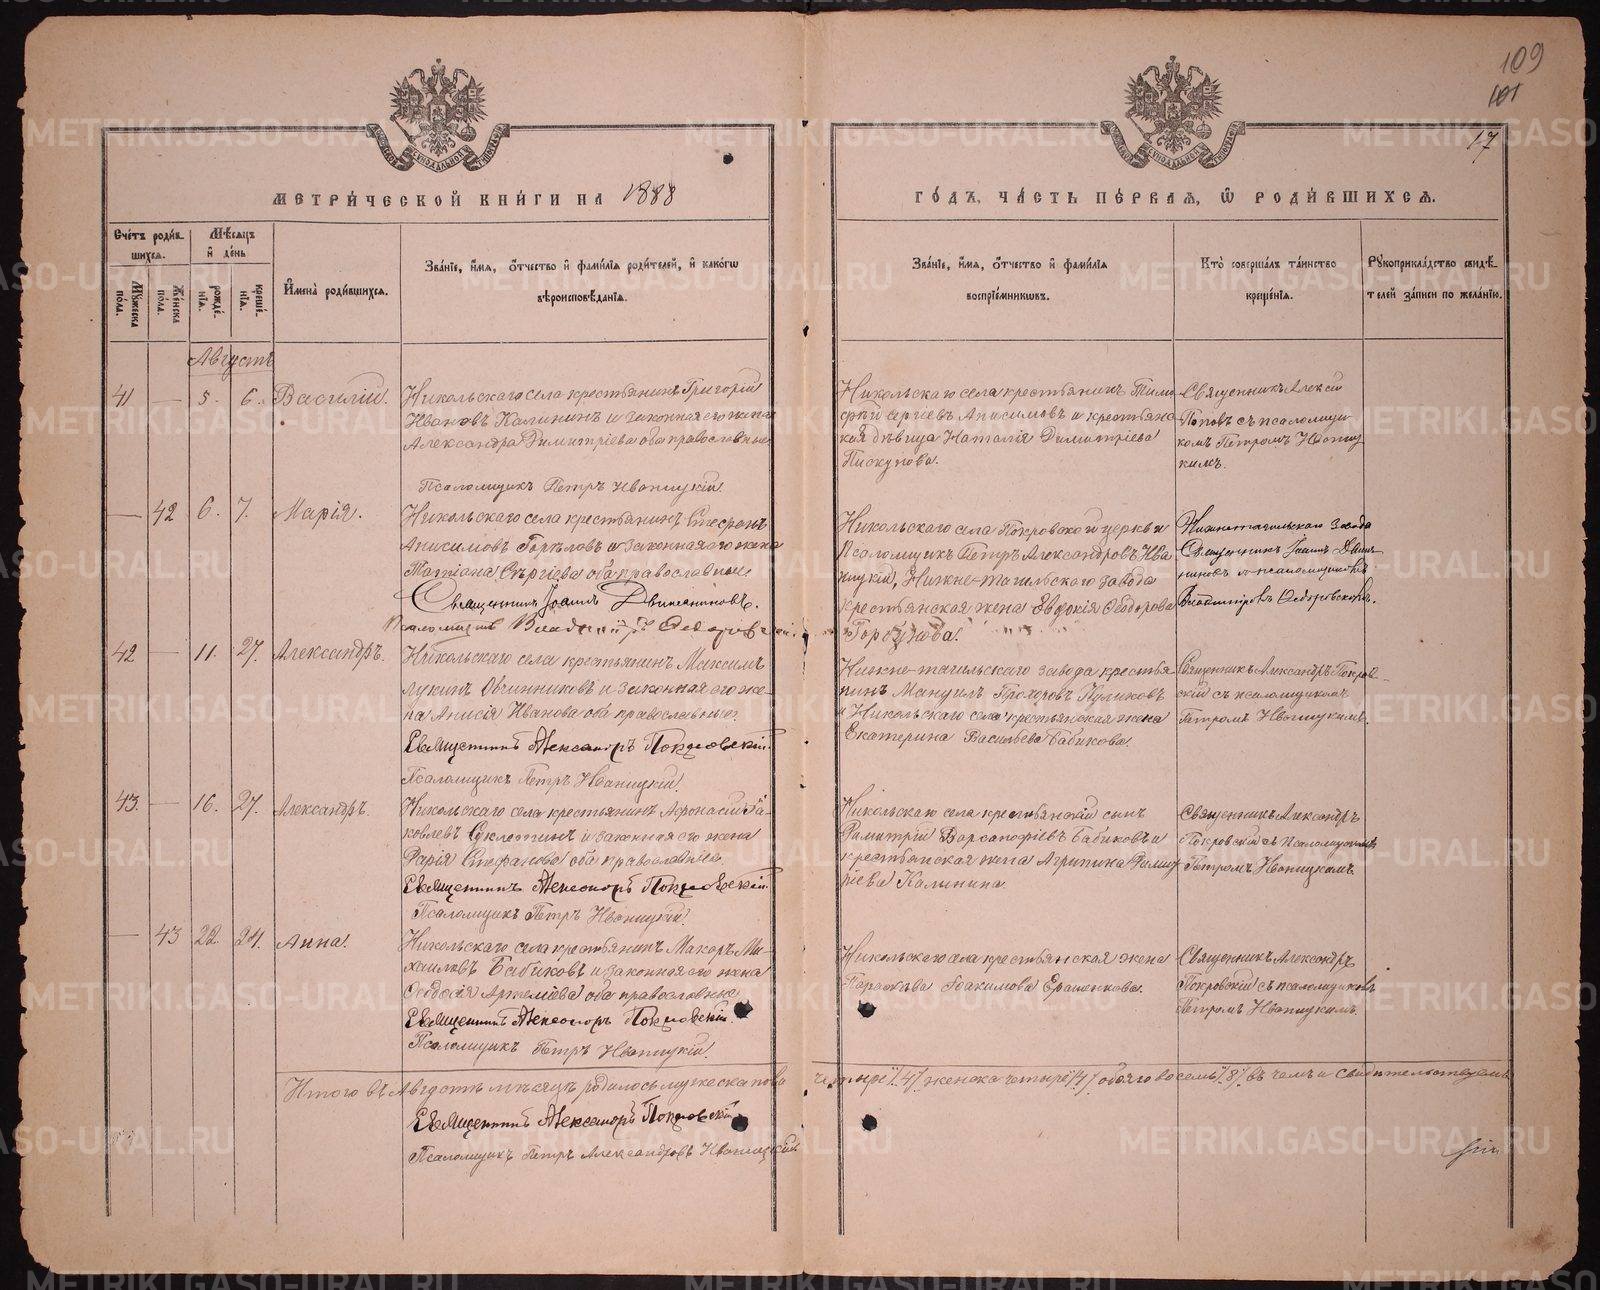 109
101
17
МЕТРИ́ЧЕСКОЙ КНИ́ГИ НА 1888
ГО́ДЪ, ЧА́СТЬ ПЕ́РВАЯ, Ѡ РОДИ́ВШИХСЯ.
Сче́тъ роди́в-
шихся.
Му́жеска
пола.
Же́нска
пола.
Мѣ́сяцъ
и҆ де́нь
рожде́-
нїѧ.
креще́-
нїѧ.
И҆мена̀ роди́вшихся.
Зва́нїе, и҆́мѧ, ѻ҆́тчество и҆ фамі́лїѧ роди́телей, и҆ како́гѡ
вѣроисповѣ́данїѧ.
Зва́нїе, и҆́мѧ, ѻ҆́тчество и҆ фамі́лїѧ
воспрїе́мниковъ.
Кто̀ соверша́лъ та́инство
креще́нїѧ.
Рꙋкоприкла́дство свидѣ́-
телей за́писи по жела́нїю.
Августъ
41 — 5. 6. Василій.
Никольскаго села крестьянинъ Григорій
Ивановъ Калининъ и законная его жена
Александра Димитріева оба православные
Псаломщикъ Петръ Иваницкій.
Никольскаго села крестьянинъ Тимо-
фей Сергіевъ Анисимовъ и крестьянс-
кая дѣвица Наталія Димитріева
Пискунова.
Священникъ Алексій
Поповъ съ псаломщи-
комъ Петромъ Иваниц-
кимъ.
— 42 6. 7. Марія.
Никольскаго села крестьянинъ
Анисимовъ Горѣловъ и законная его жена
Татіана Сергіева оба православные.
Священникъ Іоаннъ Двиняниновъ.
Псаломщикъ
Никольскаго села Покровской церкви
Псаломщикъ Петръ Александровъ Ива-
ницкій, Нижне-тагильскаго завода
крестьянская жена Евдокія Ѳеодорова
Горбунова.
Нижнетагильскаго завода
Священникъ Іоаннъ Двин-
яниновъ и псаломщикъ
42 — 11. 27. Александръ.
Никольскаго села крестьянинъ Максимъ
Лукинъ Овчинниковъ и законная его же-
на Анисія Иванова оба православные.
Священникъ Александръ Покровскій.
Псаломщикъ Петръ Иваницкій.
Нижне-тагильскаго завода крестья-
нинъ Мануилъ Прохоровъ Куликовъ
и Никольскаго села крестьянская жена
Екатерина Васильева Бабикова.
Священникъ Александръ Покров-
скій съ псаломщикомъ
Петромъ Иваницкимъ.
43. — 16. 27. Александръ.
Никольскаго села крестьянинъ Афонасій Іа-
ковлевъ и законная его жена
Дарія Стефанова оба православные.
Священникъ Александръ Покровскій.
Псаломщикъ Петръ Иваницкій.
Никольскаго села крестьянскій сынъ
Димитрій Варсанофіевъ Бабиковъ и
крестьянская жена Агрипина Димит-
ріева Калинина.
Священникъ Александръ
Покровскій съ псаломщикомъ
Петромъ Иваницкимъ.
— 43 22. 24. Анна.
Никольскаго села крестьянинъ Макаръ Ми-
хаиловъ Бабиковъ и законная его жена
Ѳеодосія Артеміева оба православные
Священникъ Александръ Покровскій.
Псаломщикъ Петръ Иваницкій.
Никольскаго села крестьянская жена
Параскева Іоакимова Ерашенкова.
Священникъ Александръ
Покровскій съ псаломщикомъ
Петромъ Иваницкимъ.
Итого въ Августѣ мѣсяцѣ родилось мужеска пола четыре /4/ женска четыре /4/ обоего восемь /8/ въ чемъ и свидѣтельствуемъ
Священникъ Александръ Покровскій
Псаломщикъ Петръ Александровъ Иваницкій
METRIKI.GASO-URAL.RU